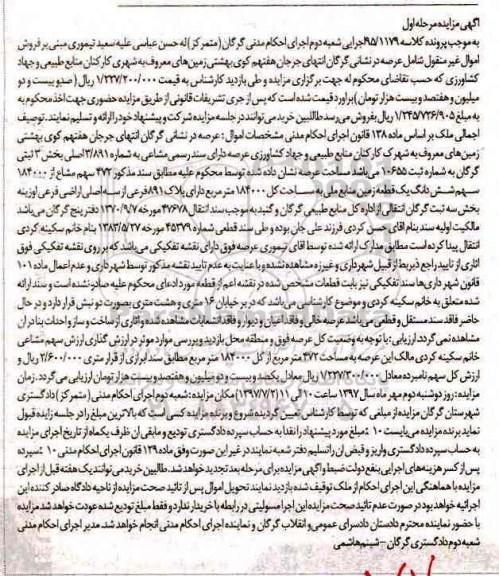 آگهی مزایده مرحله اول
به موجب پرونده کلاسه ۹۵/۱۱۷۹ اجرایی شعبه دوم اجرای احکام مدنی گرگان (متمرکز) له حسن عباسی علیه سعید تیموری مبنی بر فروش
اموال غیر منقول شامل عرصه در نشانی گرگان انتهای جرجان هفتم کوی بهشتی زمین‌های معروف به شهری کارکنان منابع طبیعی و جهاد
کشاورزی که حسب تقاضای محکوم له جهت برگزاری مزایده و طی بازدید کارشناس به قیمت ۱/۲۲۷/۲۰۰/۰۰۰ ریال (صد و بیست و دو
میلیون و هفتصد و بیست هزار تومان) برآورد قیمت شده است که پس از جری تشریفات قانونی از طریق مزایده حضوری جهت اخذ محکوم به
به مبلغ ۱/۲۴۵/۷۲۶/۹۰۵ ریال بفروش می‌رسد طالبین خرید می‌توانند در جلسه مزایده شرکت و پیشنهاد خود را ارائه و تسلیم نمایند. توصیف
اجمالی ملک بر اساس ماده ۱۳۸ قانون اجرای احکام مدنی مشخصات اموال: عرصه در نشانی گرگان انتهای جرجان هفتم کوی بهشتی
زمین‌های معروف به شهرک کارکنان منابع طبیعی و جهاد کشاورزی عرصه دارای سند رسمی مشاعی به شماره ۳/۸۹۱ اصلی بخش ۳ ثبتی
گرگان به شماره ثبت ۱۰۶۵۵ می‌باشد مساحت عرصه نشان داده شده توسط محکوم علیه مطابق سند مذکور ۴۷۲ سهم مشاع از ۱۸۴۰۰۰
سهم شش دانگ یک قطعه زمین منابع ملی به مساحت کل ۱۸۴۰۰۰ متر مربع دارای پلاک ۸۹۱ فرعی از سه اصلی اراضی فرعی اوزینه
بخش سه ثبت گرگان انتقالی از اداره کل منابع طبیعی گرگان و گنبد به موجب سند انتقال ۴۷۶۷۸ مورخه ۱۳۷۰/۹/۷ دفتر پنج گرگان می‌باشد
مالکیت اولیه سند بنام آقای حسن کردی فرزند علی جان بوده و طی سند قطعی شماره ۴۵۳۲۹ مورخه ۱۳۸۳/۵/۲۷ بنام خانم سکینه کردی
انتقال پیدا کرده است مطابق مدارک ارائه شده توسط آقای تیموری عرصه فوق دارای نقشه تفکیکی می‌باشد که بر روی نقشه تفکیکی فوق
آثاری از تایید راجع ذیربط از قبیل شهرداری و غیره مشاهده نشده و با عنایت به عدم تایید نقشه مذکور توسط شهرداری و عدم اعمال ماده ۱۰۱
قانون شهرداری‌ها سند تفکیکی نیز بابت قطعات مشخص شده در نقشه اعم از قطعه مورد ادعای محکوم علیه صادر نشده است و سند ارائه
شده متعلق به خانم سکینه کردی و موضوع کارشناسی می‌باشد که در بر خیابان ۱۶ متری و هشت متری بصورت دو نبش قرار دارد و در حال
حاضر فاقد سند مستقل و قطعی می‌باشد عرصه خالی و فاقد اعیان و دیوار و فاقد انشعابات مشاهده شده و آثاری از ساخت و ساز و احداث بنا در آن
مشاهده نمی‌گردد ارزیابی: با توجه به وضعیت کل عرصه فوق و منطقه محل بازدید و بررسی موارد موثر در ارزش گذاری ارزش سهم مشاعی
خانم سکینه کردی مالک این عرصه به مساحت ۴۷۲ متر مربع از کل ۱۸۴۰۰۰ متر مربع مطابق سند ابرازی از قرار متری ۲/۶۰۰/۰۰۰ ریال و
ارزش کل سهم نامبرده معادل ۱/۲۲۷/۲۰۰/۰۰۰ ریال معادل یکصد و بیست و دو میلیون و هفتصد و بیست هزار تومان ارزیابی می‌گردد. زمان
مزایده: روز دوشنبه دوم مهر ماه سال ۱۳۹۷ ساعت ۱۰ الی ۱۱ (۱۳۹۷/۷/۲) مکان مزایده: شعبه دوم اجرای احکام مدنی (متمرکز) دادگستری
شهرستان گرگان مزایده از مبلغی که توسط کارشناس تعیین گردیده شروع و برنده مزایده کسی است که بالاترین مبلغ را در جلسه زایده قبول
نماید برنده مزایده می‌بایست ۱۰٪ مبلغ مورد پیشنهاد را نقدا به حساب سپرده دادگستری تودیع و مابقی آن ظرف یکماه از تاریخ اجرای مزایده
به حساب سپرده دادگستری واریز و قبض آن را تسلیم دفتر شعبه نمایند در غیر این صورت وفق ماده ۱۲۹ قانون اجرای احکام مدنی ۱۰٪ سپرده
پس از کسر هزینه‌های اجرایی بنفع دولت ضبط و آگهی مزایده برای مرحله بعد تجدید خواهد شد. طالبین خرید می‌توانند یک هفته قبل از اجرای
مزایده با هماهنگی این اجرای احکام از ملک توقیف شده بازدید نمایند تحویل اموال پس از تائید صحت مزایده از ناحیه دادگاه صادر کننده این
اجرائیه خواهد بود در صورت عدم تائید صحت مزایده این اجرا مسولیتی در رابطه با خریدار ندارد و فقط مبلغ تودیع شده عودت خواهد شد مزایده
با حضور نماینده محترم دادستان دادسرای عمومی و انقلاب گرگان و نماینده اجرای احکام مدنی انجام خواهد شد. مدیر اجرای احکام مدنی
شعبه دوم دادگستری گرگان - شبنم هاشمی